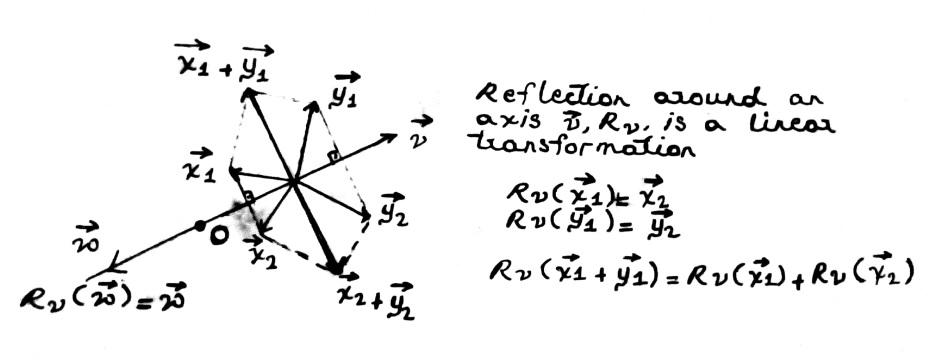 x⃗1 + y⃗1
y⃗1
v⃗
x⃗1
y⃗2
O
x⃗2
w⃗
Rv(w⃗) = w⃗
x⃗2 + y⃗2
Reflection around an
axis v⃗, Rv, is a linear
transformation
Rv(x⃗1) = x⃗2
Rv(y⃗1) = y⃗2
Rv(x⃗1 + y⃗1) = Rv(x⃗1) + Rv(y⃗2)